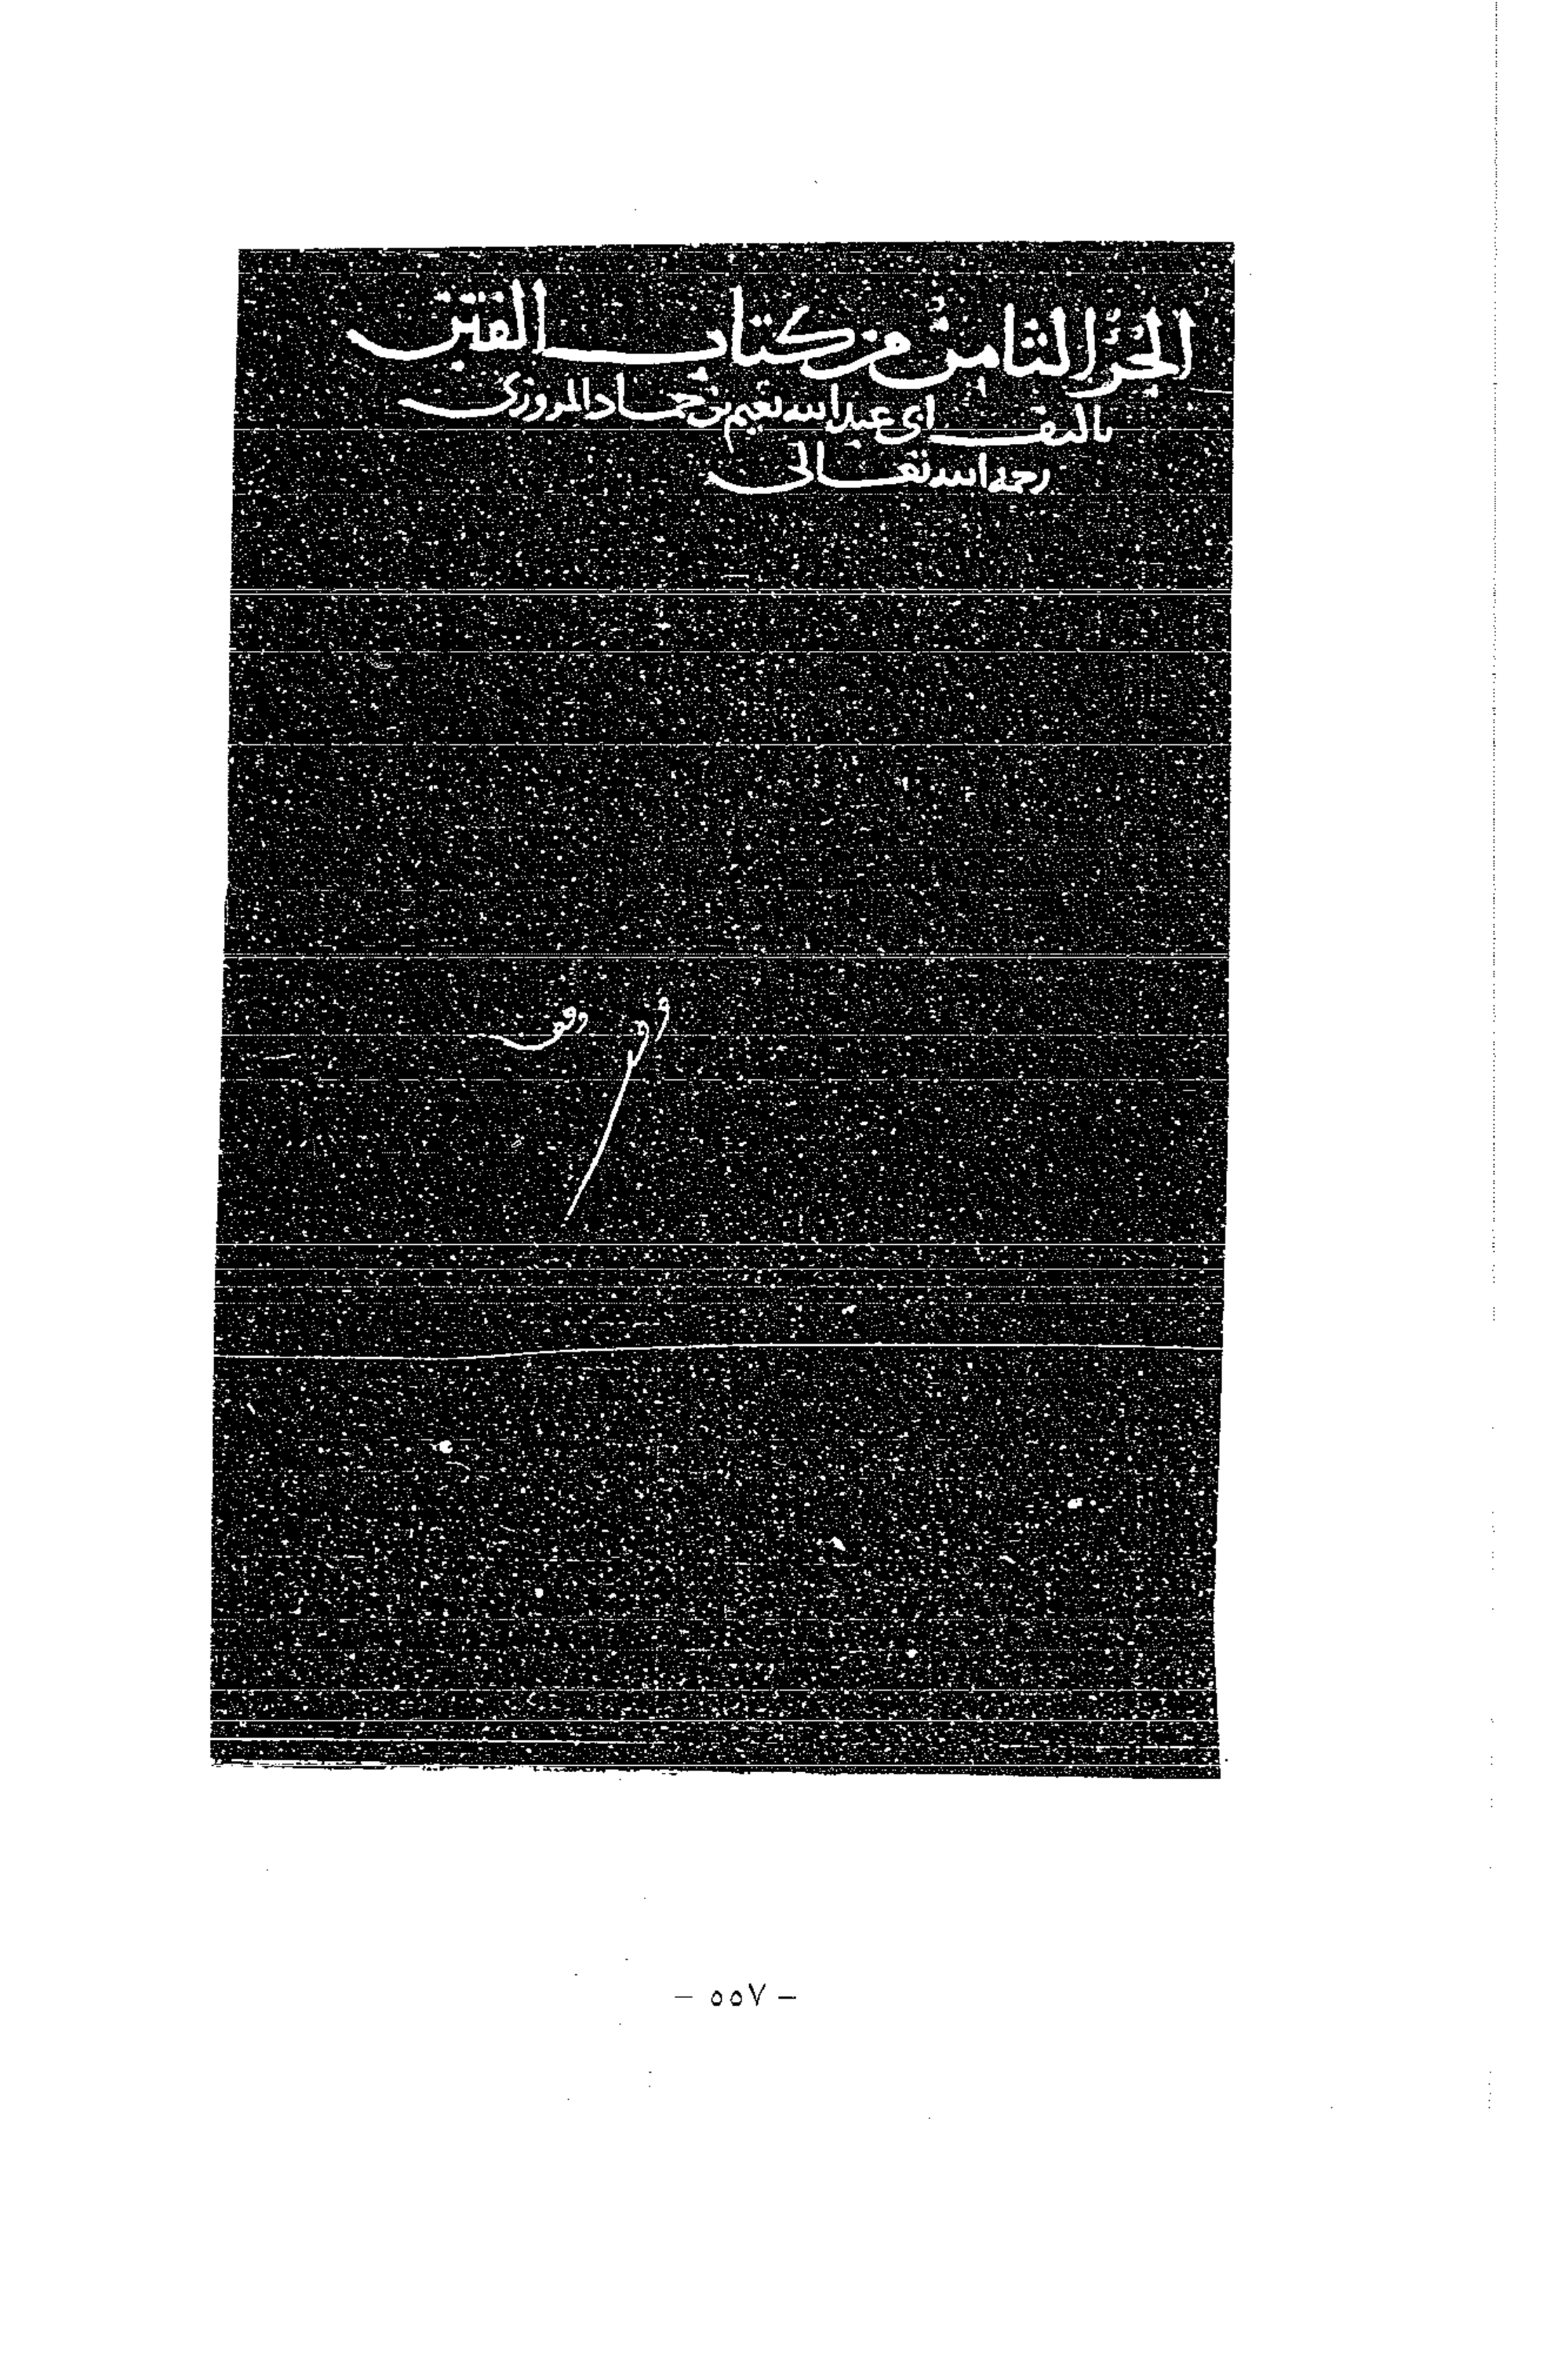 الجزء الثامن من كتاب الفتن
تاليف ابى عبد الله نعيم بن حماد المروزى
رحمه الله تعالى
وقف
— ٥٥٧ —